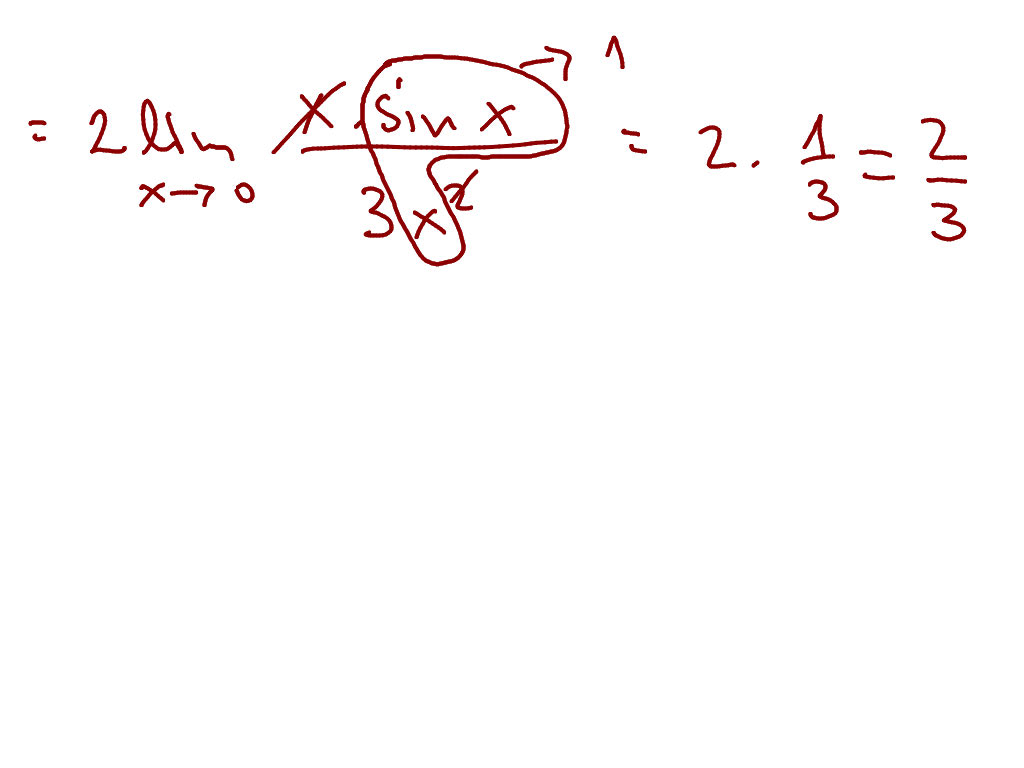 = 2 lim x→0 x · sin x / 3x² → 1 = 2 · 1/3 = 2/3